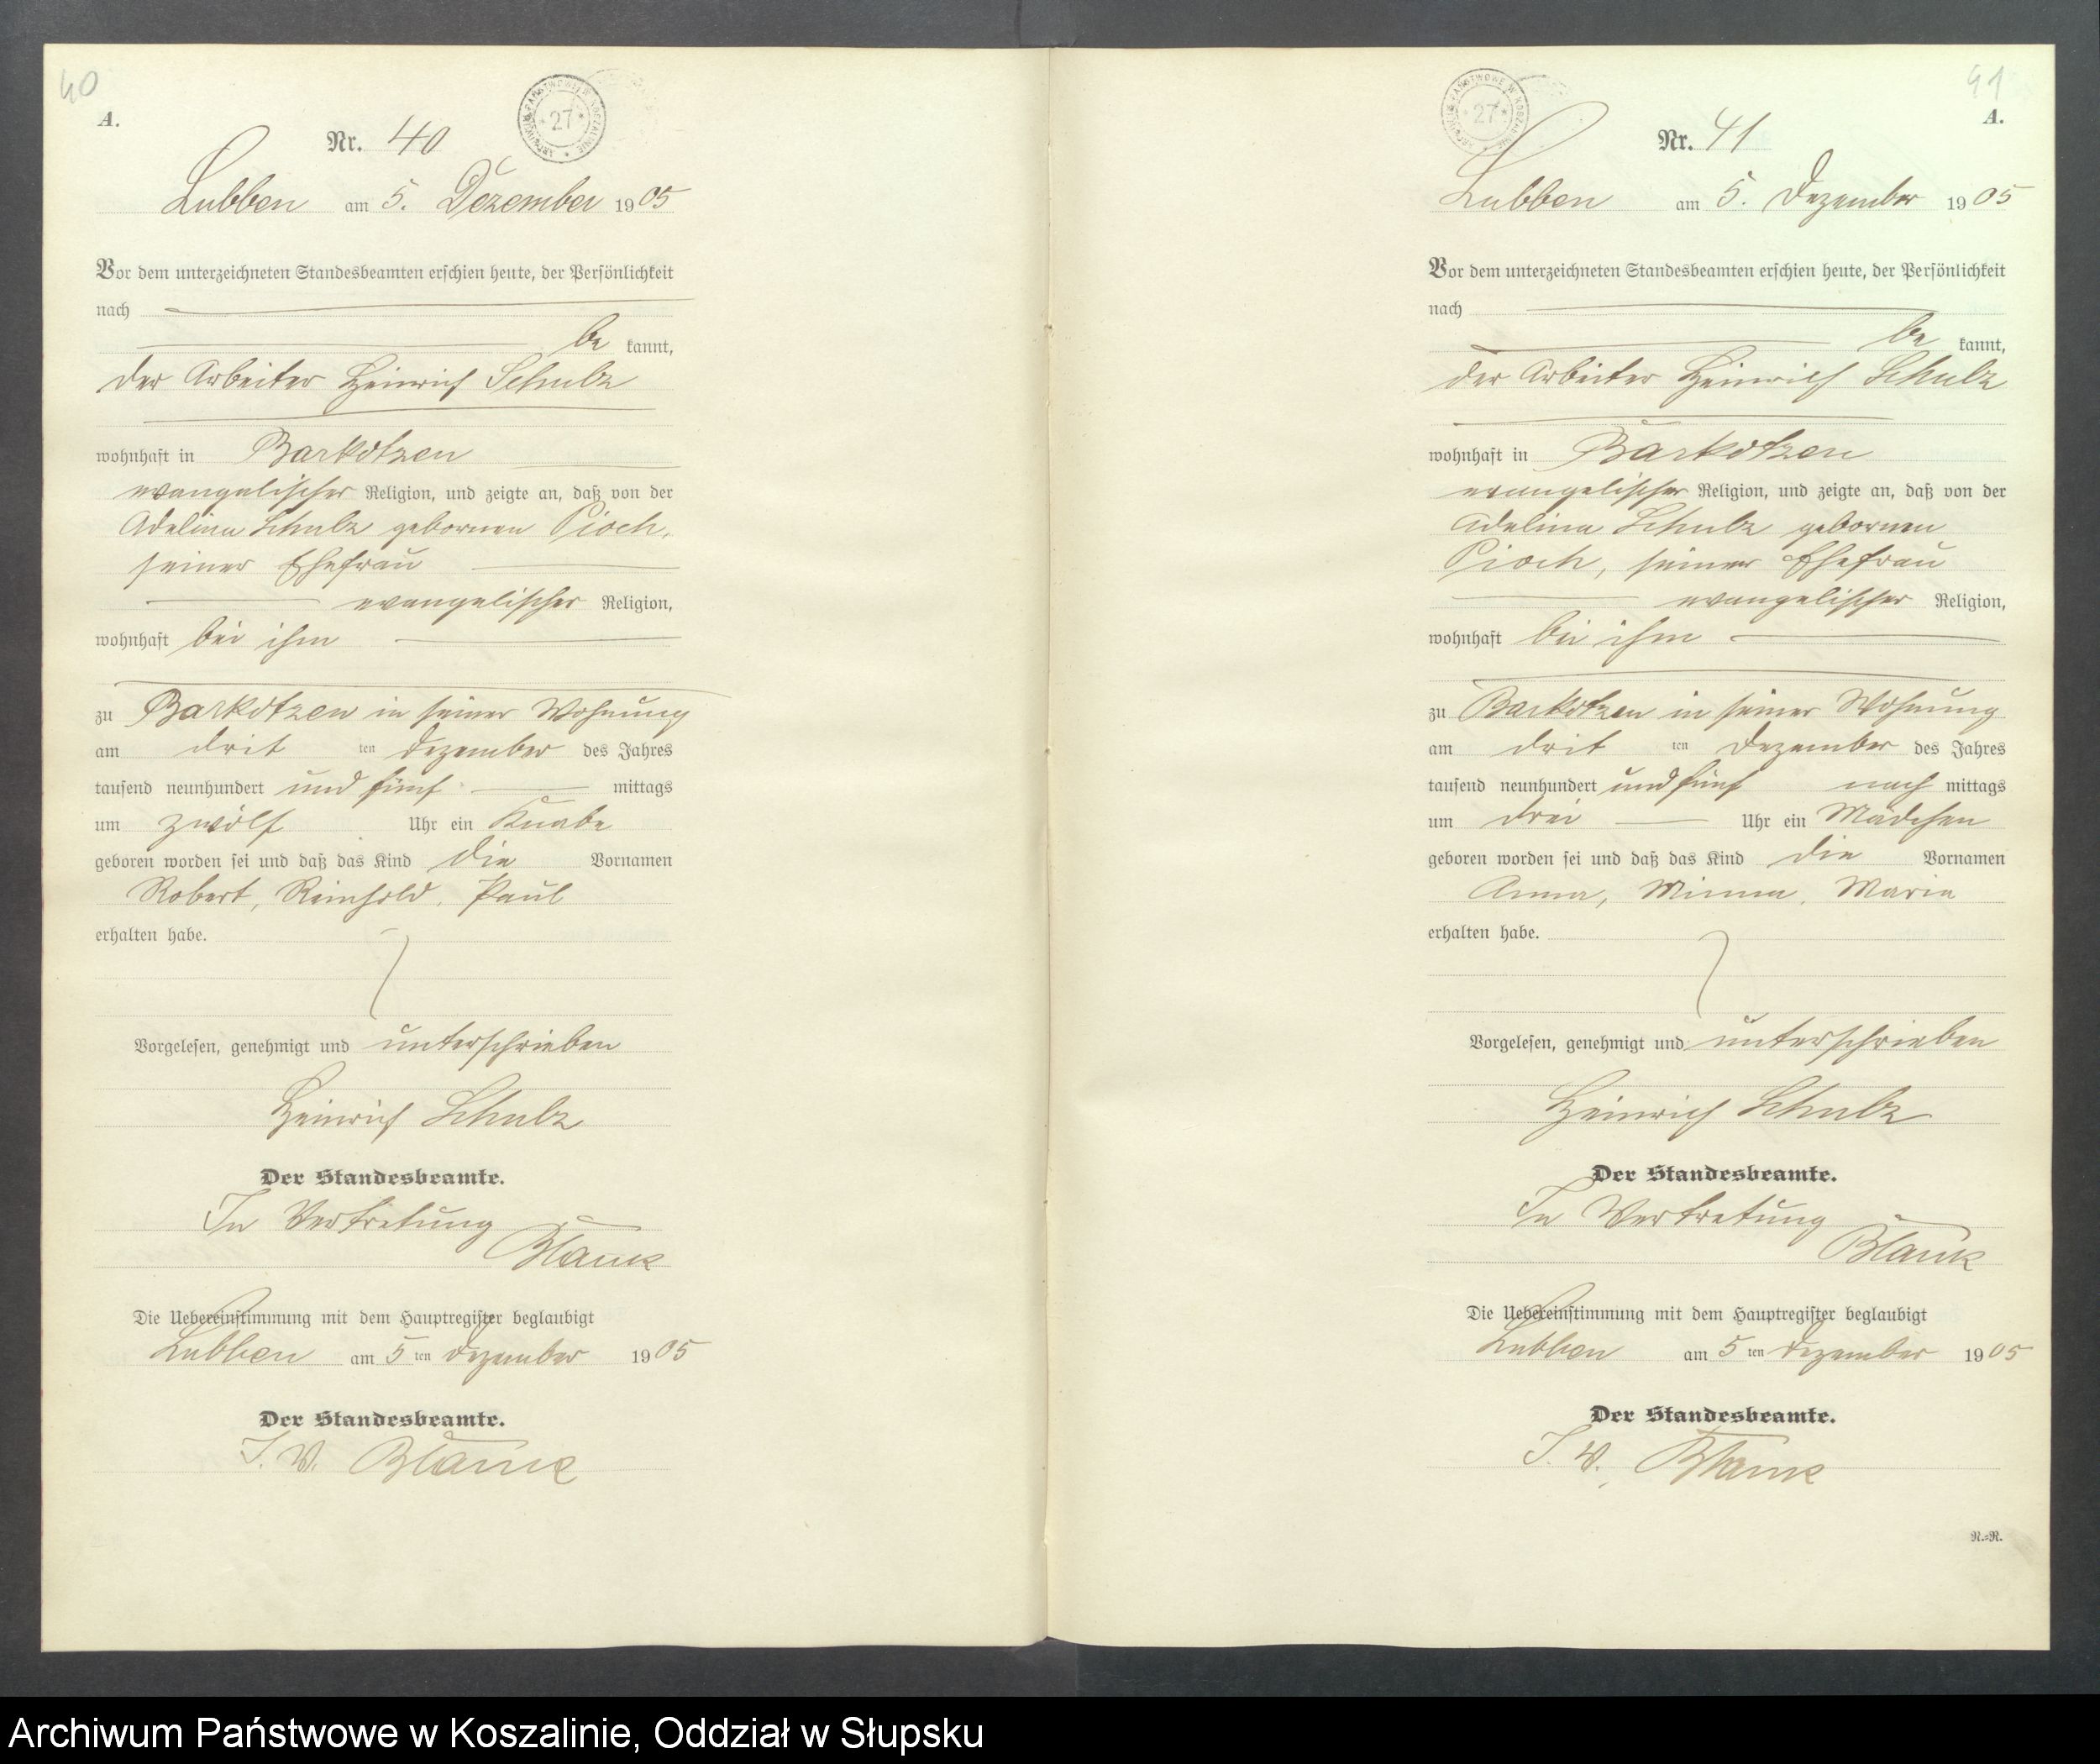 40
A.
ARCHIWUM PAŃSTWOWE W KOSZALINIE
27
Nr. 40
Lubben am 5. Dezember 1905
Vor dem unterzeichneten Standesbeamten erschien heute, der Persönlichkeit
nach
be kannt,
der Arbeiter Heinrich Schulz
wohnhaft in Barkotzen
evangelischer Religion, und zeigte an, daß von der
Adeline Schulz geborenen Pioch,
seiner Ehefrau
evangelischer Religion,
wohnhaft bei ihm
zu Barkotzen in seiner Wohnung
am drit ten Dezember des Jahres
tausend neunhundert und fünf mittags
um zwölf Uhr ein Knabe
geboren worden sei und daß das Kind die Vornamen
Robert, Reinhold, Paul
erhalten habe.
Vorgelesen, genehmigt und unterschrieben
Heinrich Schulz
Der Standesbeamte.
In Vertretung
Blank
Die Uebereinstimmung mit dem Hauptregister beglaubigt
Lubben am 5 ten Dezember 1905
Der Standesbeamte.
I. V. Blank
41
A.
ARCHIWUM PAŃSTWOWE W KOSZALINIE
27
Nr. 41
Lubben am 5. Dezember 1905
Vor dem unterzeichneten Standesbeamten erschien heute, der Persönlichkeit
nach
be kannt,
der Arbeiter Heinrich Schulz
wohnhaft in Barkotzen
evangelischer Religion, und zeigte an, daß von der
Adeline Schulz geborenen
Pioch, seiner Ehefrau
evangelischer Religion,
wohnhaft bei ihm
zu Barkotzen in seiner Wohnung
am drit ten Dezember des Jahres
tausend neunhundert und fünf nach mittags
um drei Uhr ein Mädchen
geboren worden sei und daß das Kind die Vornamen
Anna, Minna, Marie
erhalten habe.
Vorgelesen, genehmigt und unterschrieben
Heinrich Schulz
Der Standesbeamte.
In Vertretung
Blank
Die Uebereinstimmung mit dem Hauptregister beglaubigt
Lubben am 5 ten Dezember 1905
Der Standesbeamte.
I. V. Blank
N.-R.
Archiwum Państwowe w Koszalinie, Oddział w Słupsku